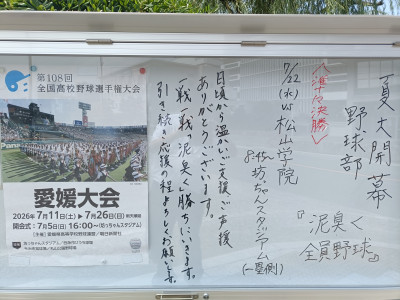 夏大開幕
野球部
『泥臭く
全員野球』
〈準々決勝〉
7/22(水) vs 松山学院
坊っちゃんスタジアム
(一塁側)
日頃から温かいご支援ご声援
ありがとうございます。
一戦一戦「泥臭く」勝ちにいきます。
引き続き応援の程よろしくお願いします。
第108回
全国高校野球選手権大会
愛媛大会
2026年7月11日(土)▶7月26日(日)
開会式：7月5日(日) 16:00〜(坊っちゃんスタジアム)